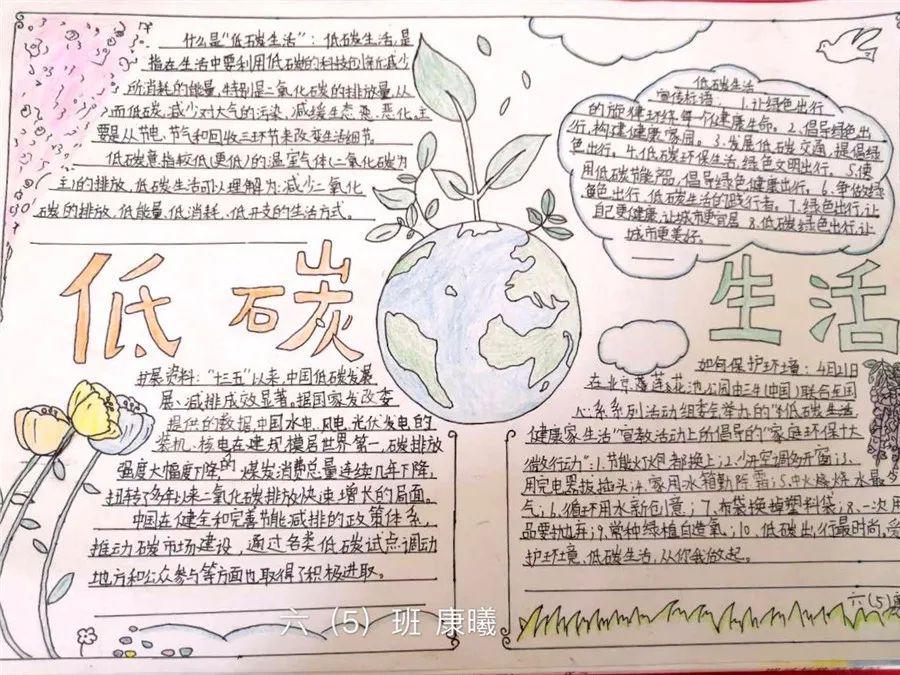 什么是“低碳生活”：低碳生活,是
指在生活中要利用低碳的科技创新减少
所消耗的能量,特别是二氧化碳的排放量,从
而低碳,减少对大气的污染,减缓生态恶化,主
要是从节电、节气和回收三环节来改变生活细节。
低碳意指较低(更低)的温室气体(二氧化碳为
主)的排放,低碳生活可以理解为:减少二氧化
碳的排放,低能量,低消耗,低开支的生活方式。
低碳生活
宣传标语： 1.让绿色出行
的旋律环绕每个健康生命。2.倡导绿色出
行,构建健康家园。3.发展低碳交通,提倡绿
色出行。4.低碳环保生活,绿色文明出行。5.使
用低碳节能产品,倡导绿色健康出行。6.争做绿
色出行,低碳生活的践行者。7.绿色出行,让
自己更健康,让城市更宜居 8.低碳绿色出行,让
城市更美好。
低碳
生活
扩展资料：“十三五”以来,中国低碳发展
展、减排成效显著。据国家发改委
提供的数据,中国水电,风电,光伏发电的
装机、核电在建规模居世界第一,碳排放
强度大幅度下降的,煤炭消费总量连续几年下降,
扭转了多年以来二氧化碳排放快速增长的局面。
中国在健全和完善节能减排的政策体系,
推动碳市场建设,通过各类低碳试点,调动
地方和公众参与等方面也取得了积极进取。
如何保护环境：4月21日
在北京莲花池公园由三牛(中国)联合全国
心系系列活动组委会举办的“低碳生活
健康家生活”宣教活动上所倡导的“家庭环保十大
微行动”:1.节能灯泡都换上;2.少开空调多开窗;3.
用完电器拔插头;4.家用水箱勤除霜;5.中火烧烧水最
气;6.循环用水新创意;7.布袋换掉塑料袋;8.一次用
品要抛弃;9.常种绿植自造氧;10.低碳出行最时尚,爱
护环境,低碳生活,从你我做起。
六(5)
六（5）班 康曦